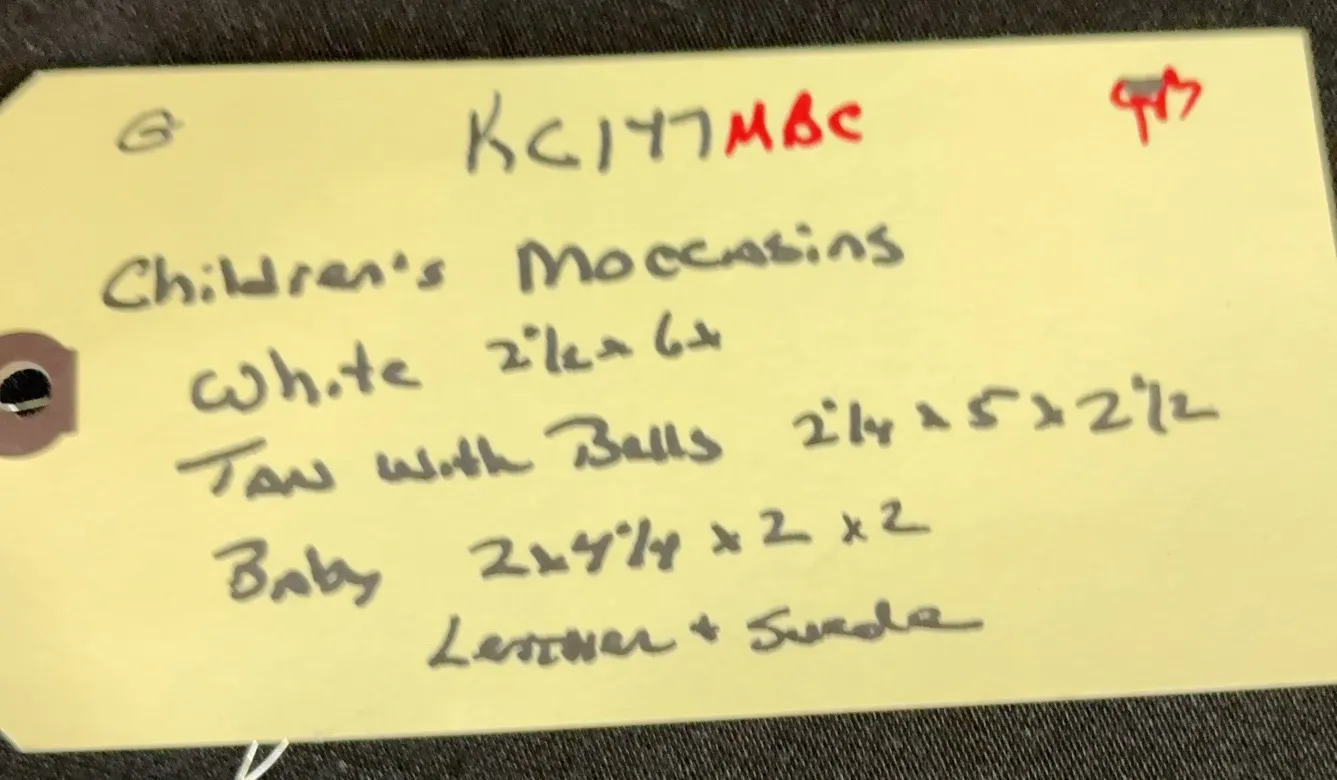 G KC147 MBC
Children's Moccasins
White 2 1/2 x 6 x
Tan with Bells 2 1/4 x 5 x 2 1/2
Baby 2 x 4 1/4 x 2 x 2
Leather + Suede